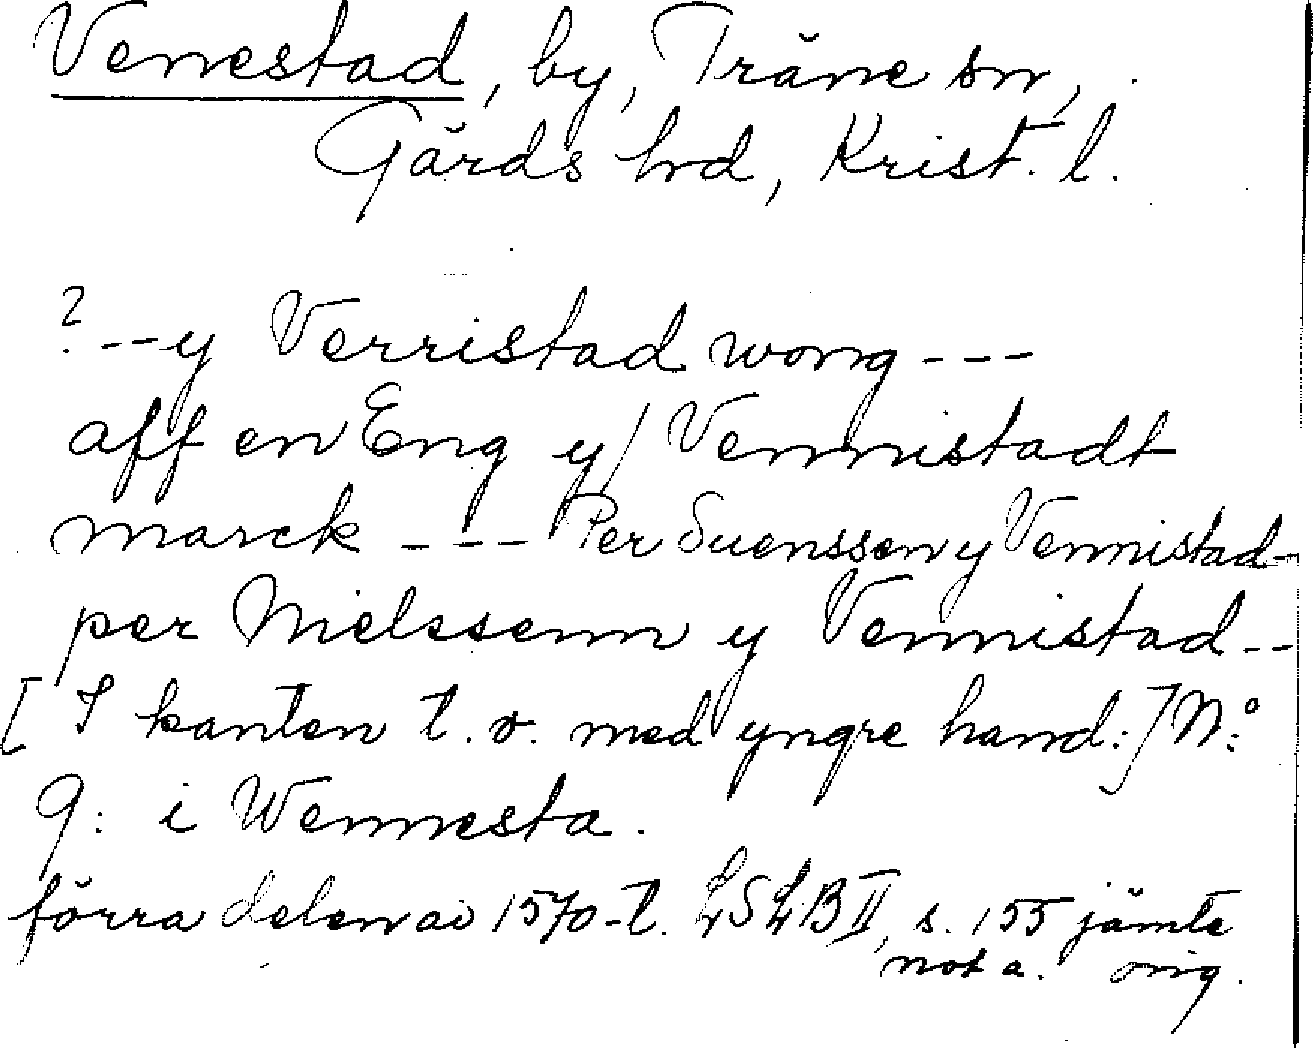 Vennestad, by, Träne sn,
Gärds hd, Krist. l.
? --y Verristad wong ---
aff en Eng y/ Vennistadt
marck --- Per Suenssen y Vennistad--
per Nielssenn y Vennistad--
[I kanten t. v. med yngre hand:] N:o
9: i Wennesta.
förra delen av 1570-t. LSLB II, s. 155 jämte
not a. orig.